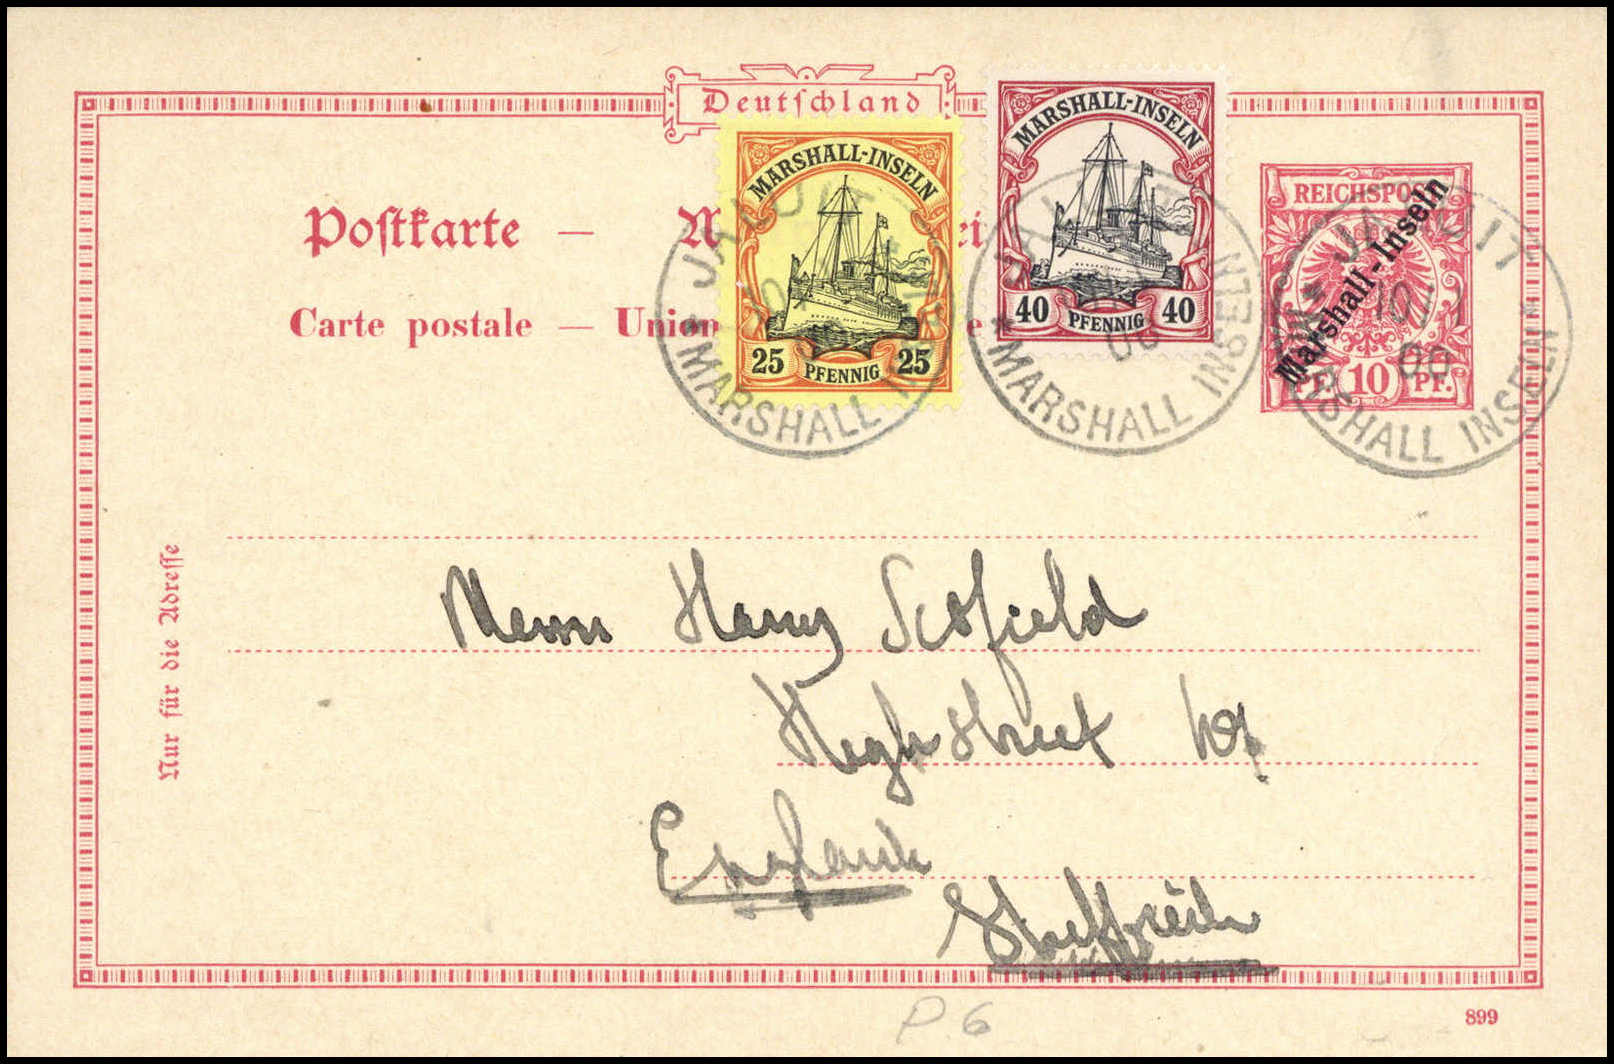 Deutschland
Postkarte —
Carte postale — Union
MARSHALL-INSELN
25 PFENNIG 25
MARSHALL-INSELN
40 PFENNIG 40
REICHSPOST
Marshall-Inseln
PF. 10 PF.
JALUIT
* MARSHALL INSELN
JALUIT
00
* MARSHALL INSELN *
JALUIT
10.
00
MARSHALL INSELN *
Nur für die Adresse
Herrn Harry Scofield
High Street
England
Sheffield
P. 6
899